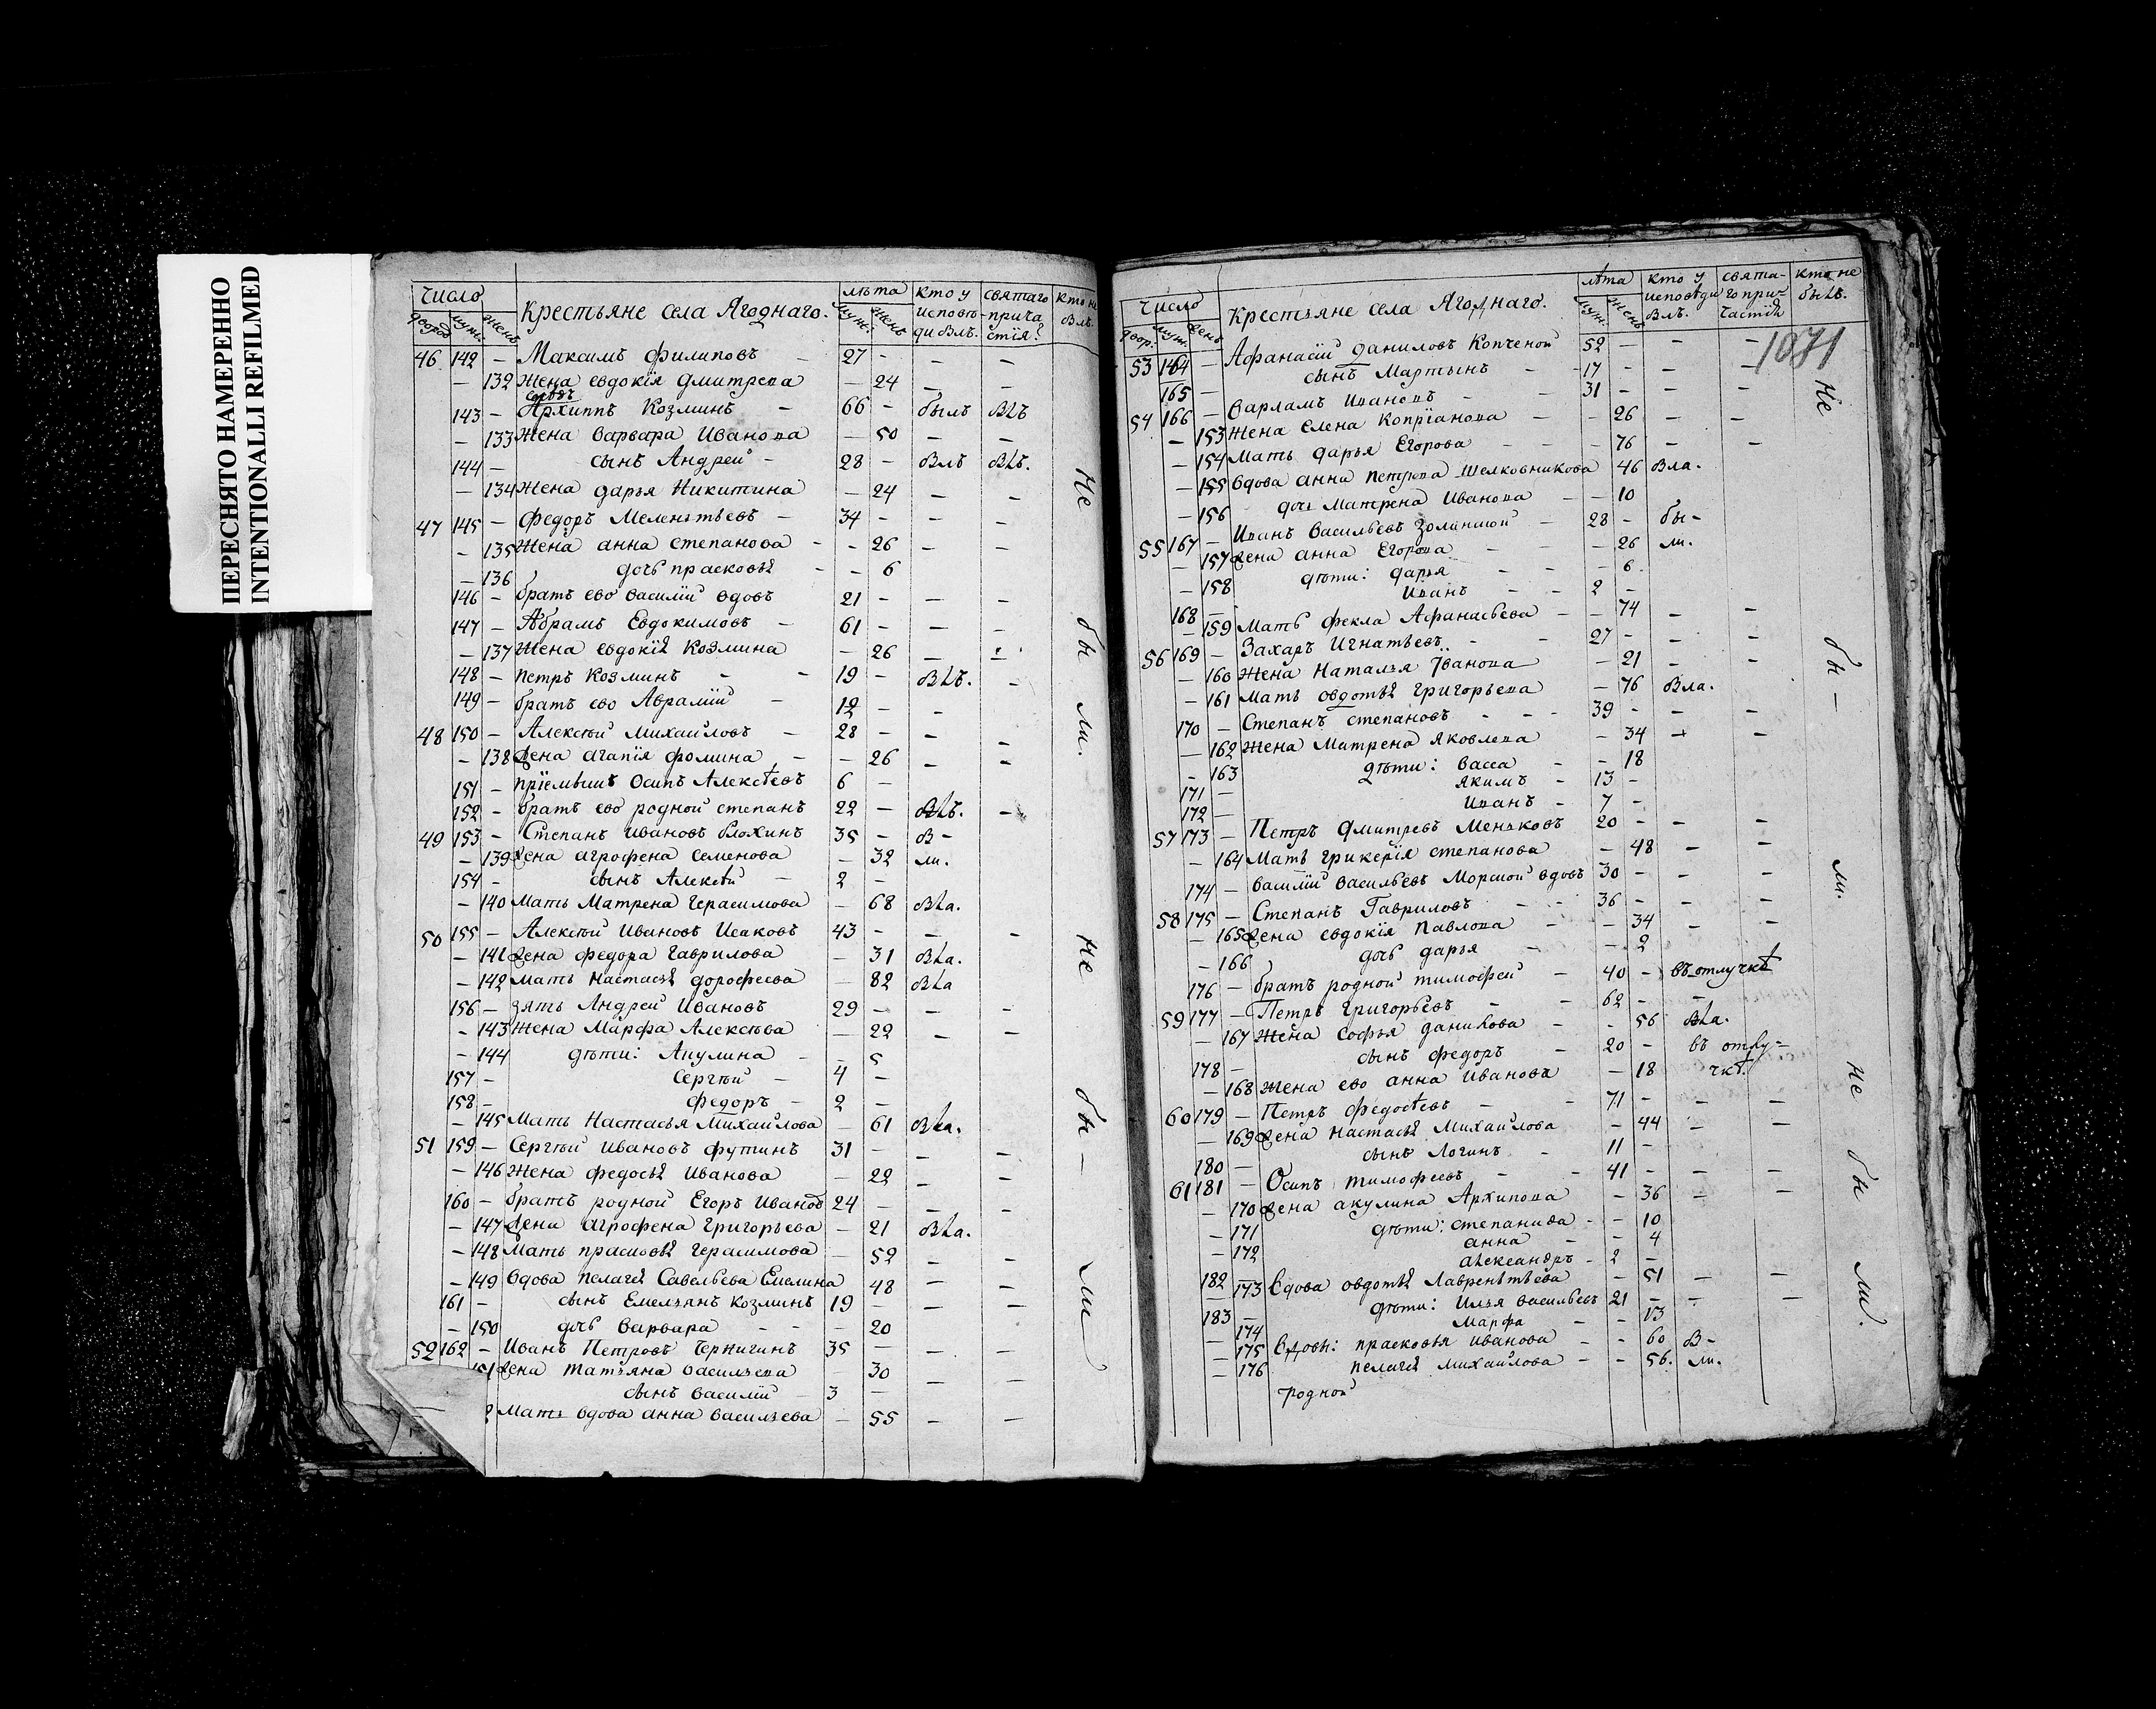 ПЕРЕСНЯТО НАМЕРЕННО
INTENTIONALLI REFILMED
Число Крестьяне села Ягоднаго. лѣта кто у исповѣди былъ. святаго причастія? кто не былъ.
дворов муж. женъ муж. женъ
46 142 – Максимъ Филиповъ – 27 – – –
– 132 Жена Евдокія Дмитрева – 24 – –
143 – Архиппъ Козминъ – 66 – былъ былъ
– 133 Жена Варвара Иванова – 50 – –
144 – сынъ Андрей – 28 – былъ былъ.
– 134 Жена Дарья Никитина – 24 – –
47 145 – Федоръ Меленьтьевъ – 34 – – –
– 135 Жена Анна Степанова – – 26 – –
– 136 дочь Прасковья – – 6
146 – братъ ево Василій вдовъ 21 – – –
147 – Абрамъ Евдокимовъ – 61 – – –
– 137 Жена Евдокія Козмина – 26 – –
148 – Петръ Козминъ – – 19 – былъ. –
149 – братъ ево Аврамій – 12 – –
48 150 – Алексѣй Михайловъ – 28 – – –
– 138 Жена Агапія Фомина – – 26 – –
151 – пріемышъ Осипъ Алексѣевъ 6 –
152 – братъ ево родной Степанъ 22 – былъ. –
49 153 – Степанъ Ивановъ Блохинъ 35 – бы–
– 139 Жена Агрофена Семенова – 32 ли.
154 – сынъ Алексѣй – 2 –
– 140 Мать Матрена Герасимова – 68 была.
50 155 – Алексѣй Ивановъ Исаковъ 43 – – –
– 141 Жена Федора Гаврилова – 31 была.
– 142 Мать Настасья Дорофеева – 82 была
156 – зять Андрей Ивановъ 29 – – –
– 143 Жена Марфа Алексѣева – 22 – –
– 144 дѣти: Акулина – – 5
157 – Сергѣй – 4 –
158 – Федоръ – 2 –
– 145 Мать Настасья Михайлова – 61 была.
51 159 – Сергѣй Ивановъ Футинъ 31 – – –
– 146 Жена Федосья Иванова – 22 – –
160 – братъ родной Егоръ Ивановъ 24 – – –
– 147 Жена Агрофена Григорьева – 21 была.
– 148 Мать Прасковья Герасимова – 52 – –
– 149 Вдова Пелагея Савельева Емелина 48 – –
161 – сынъ Емельянъ Козминъ 19 – – –
– 150 дочь Варвара – – – 20
52 162 – Иванъ Петровъ Чернигинъ 35 – – –
Жена Татьяна Васильева – 30 – –
сынъ Василій – 3 –
Мать вдова Анна Васильева – 55 – –
Не бы ли. Не бы– ли
Число Крестьяне села Ягоднаго. лѣта кто у исповѣди былъ. святаго причастія кто не былъ.
двор. муж. женъ муж. женъ
1071
53 164 – Афанасій Даниловъ Копченой 52 – – –
165 – сынъ Мартынъ – – 17 – – –
54 166 – Варламъ Ивановъ – – 31 – – –
– 153 Жена Елена Копріанова – – 26 – –
– 154 Мать Дарья Егорова – – – 76 – –
– 155 Вдова Анна Петрова Шелковникова 46 была.
– 156 дочь Матрена Иванова – – 10
55 167 – Иванъ Васильевъ – 28 – бы–
– 157 Жена Анна Егорова – – – 26 ли.
– 158 дѣти: Дарья – – – 6.
168 – Иванъ – – 2 –
– 159 Мать Фекла Афанасьева – – 74 – –
56 169 – Захаръ Игнатьевъ – – 27 – – –
– 160 Жена Наталья Іванова – 21 – –
– 161 Мать Овдотья Григорьева – 76 была.
170 – Степанъ Степановъ – – – 39 – – –
– 162 Жена Матрена Яковлева – 34 – –
– 163 дѣти: Васса – – 18
171 – Якимъ – 13 –
172 – Иванъ – 7 –
57 173 – Петръ Дмитревъ Меньковъ 20 – – –
– 164 Мать Грикерія Степанова – 48 – –
174 – Василій Васильевъ Морской вдовъ 30 – – –
58 175 – Степанъ Гавриловъ – – 36 – – –
– 165 Жена Евдокія Павлова – – 34 – –
– 166 дочь Дарья – – 2
176 – братъ родной Тимофей – 40 – въ отлучкѣ
59 177 – Петръ Григорьевъ – – 62 – –
– 167 Жена Софья Данилова – – 56 была.
178 – сынъ Федоръ – 20 – въ отлу–
– 168 Жена ево Анна Иванова – 18 чкѣ.
60 179 – Петръ Федосѣевъ – – 71 – – –
– 169 Жена Настасья Михайлова – 44 – –
180 – сынъ Логинъ – 11 –
61 181 – Осипъ Тимофеевъ – – 41 – – –
– 170 Жена Акулина Архипова – 36 – –
– 171 дѣти: Степанида – – 10
– 172 Анна – – 4
182 – Александръ – 2 –
– 173 Вдова Овдотья Лаврентьева – 51 – –
183 – дѣти: Илья Васильевъ 21 – – –
– 174 Марфа – – 13
– 175 Вдовы: Прасковья Иванова – – 60 бы–
– 176 Пелагея Михайлова – – 56. ли.
родной
Не бы– ли. Не бы ли.